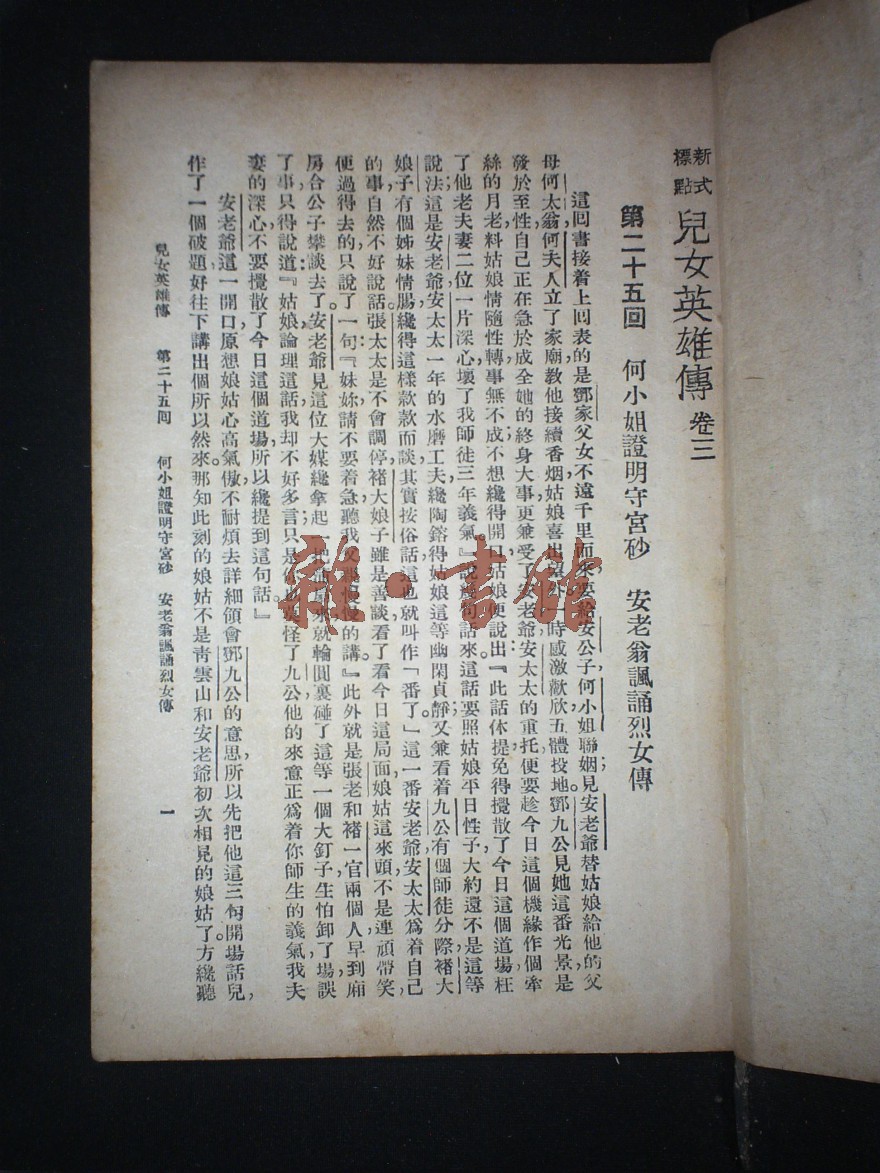 新式標點 兒女英雄傳 卷三
第二十五回 何小姐證明守宮砂 安老翁諷誦烈女傳
這回書接着上回表的是鄧家父女不遠千里而來要給安公子何小姐聯姻見安老爺替姑娘給他的父
母何太翁何夫人立了家廟教他接續香烟姑娘喜出望外一時感激歡欣五體投地鄧九公見她這番光景是
發於至性自己正在急於成全她的終身大事更兼受了安老爺安太太的重托便要趁今日這個機緣作個牽
絲的月老料姑娘情隨性轉事無不成不想纔得開口姑娘便說出『此話休提免得攪散了今日這個道場枉
了他老夫妻二位一片深心壞了我師徒三年義氣』說這句話來這話要照姑娘平日性子大約還不是這等
說法這是安老爺安太太一年的水磨工夫纔陶鎔得姑娘這等幽閑貞靜又兼看着九公有個師徒分際褚大
娘子有個姊妹情腸纔得這樣款款而談其實按俗話這也就叫作「番了」這一番安老爺安太太爲着自己
的事自然不好說話張太太是不會調停褚大娘子雖是善談看了看今日這局面娘姑這來頭不是連頑帶笑
便過得去的只說了一句『妹妳請不要着急聽我慢慢的講』此外就是張老和褚一官兩個人早到廂
房合公子攀談去了安老爺見這位大媒纔拿起一把來就輪圓裏碰了這等一個大釘子生怕卸了場誤
了事只得說道『姑娘論理這話我却不好多言只是你怪了九公他的來意正爲着你師生的義氣我夫
妻的深心不要攪散了今日這個道場所以纔提到這句話』
安老爺這一開口原想娘姑心高氣傲不耐煩去詳細領會鄧九公的意思所以先把他這三句開場話兒
作了一個破題好往下講出個所以然來那知此刻的娘姑不是青雲山和安老爺初次相見的娘姑了方纔聽
兒女英雄傳 第二十五回 何小姐證明守宮砂 安老翁諷誦烈女傳 一
雜·書館